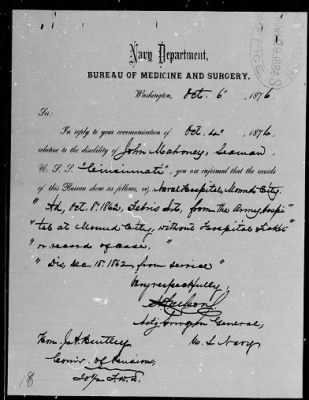 Navy Department,
BUREAU OF MEDICINE AND SURGERY.
Washington, Oct. 6" 1876
Sir:
In reply to your communication of Oct. 4" 1876
relative to the disability of John Mahoney, Seaman
U. S. S. "Cincinnati", you are informed that the records
of this Bureau show as follows, viz, Naval Hospital, Mound City.
"Ad, Oct. 8. 1862, Febris Int, from the Army hospi"
"tal at Mound City, without Hospital Ticket"
"or record of case."
"Dis, Dec 15. 1862 from service"
Very respectfully,
Actg Surgeon General,
U. S. Navy
Hon. J. A. Bentley
Comr. of Pensions,
18